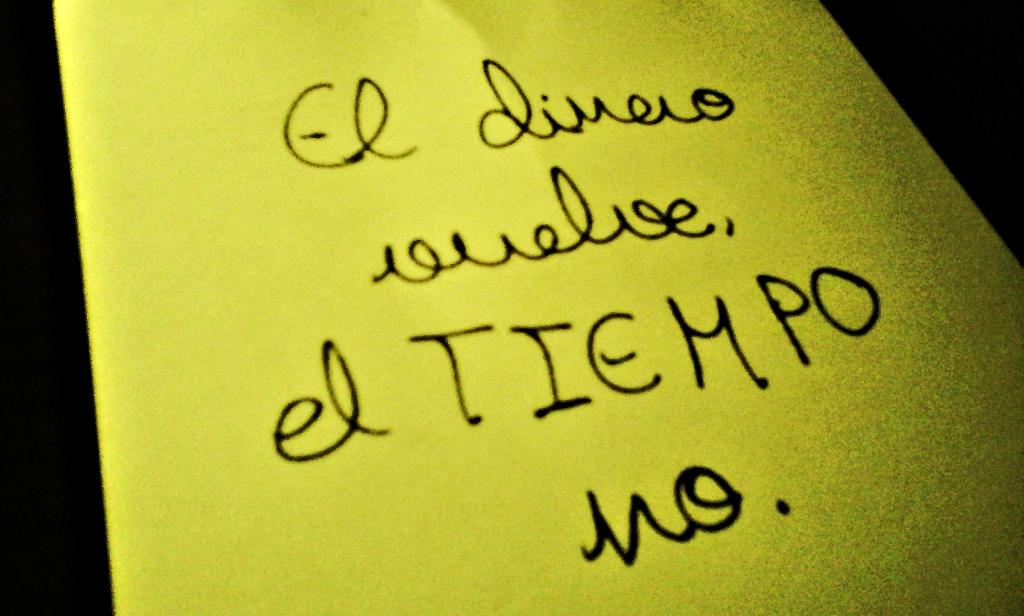 El dinero
vuelve,
el TIEMPO
no.